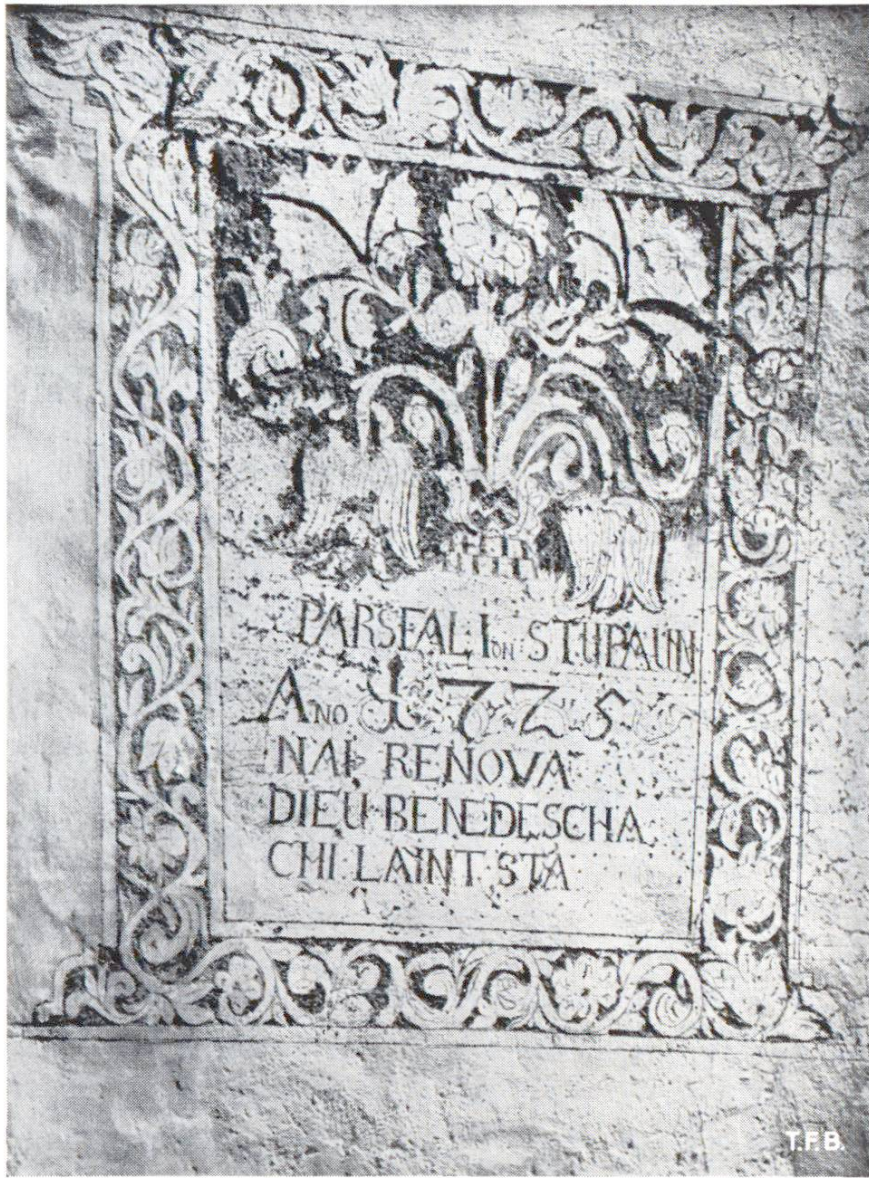 PARSEAL Ion STUPAUN
ANO 1725
NAI RENOVA
DIEU BENEDESCHA
CHI LAINT STA
T.F.B.